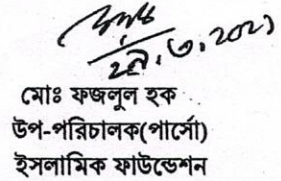 ২৪.৩.২০২১
মোঃ ফজলুল হক
উপ-পরিচালক(পার্সো)
ইসলামিক ফাউন্ডেশন